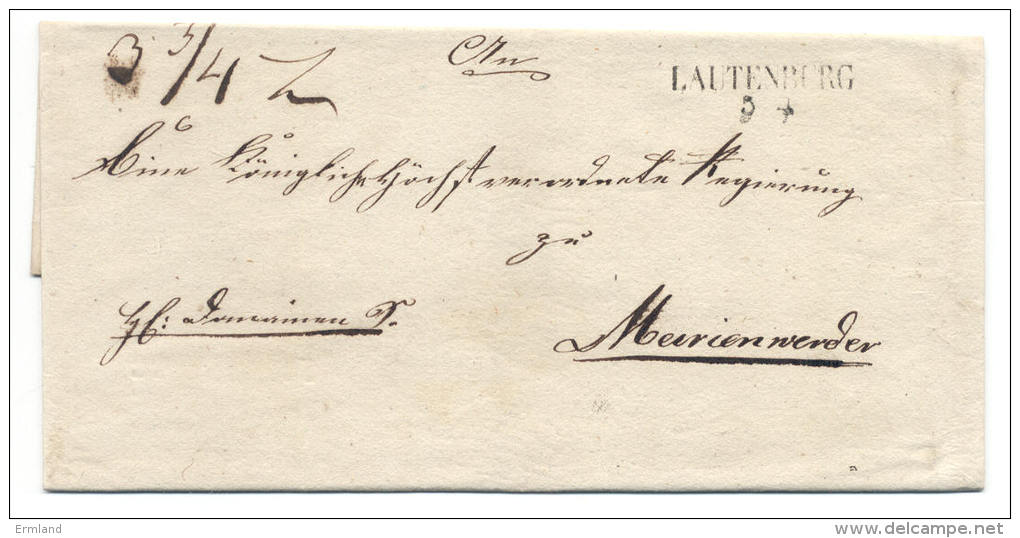 3 3/4
An
LAUTENBURG
3 4
Eine Königliche Höchstverordnete Regierung
zu
Domainen S.
Marienwerder
Ermland
www.delcampe.net